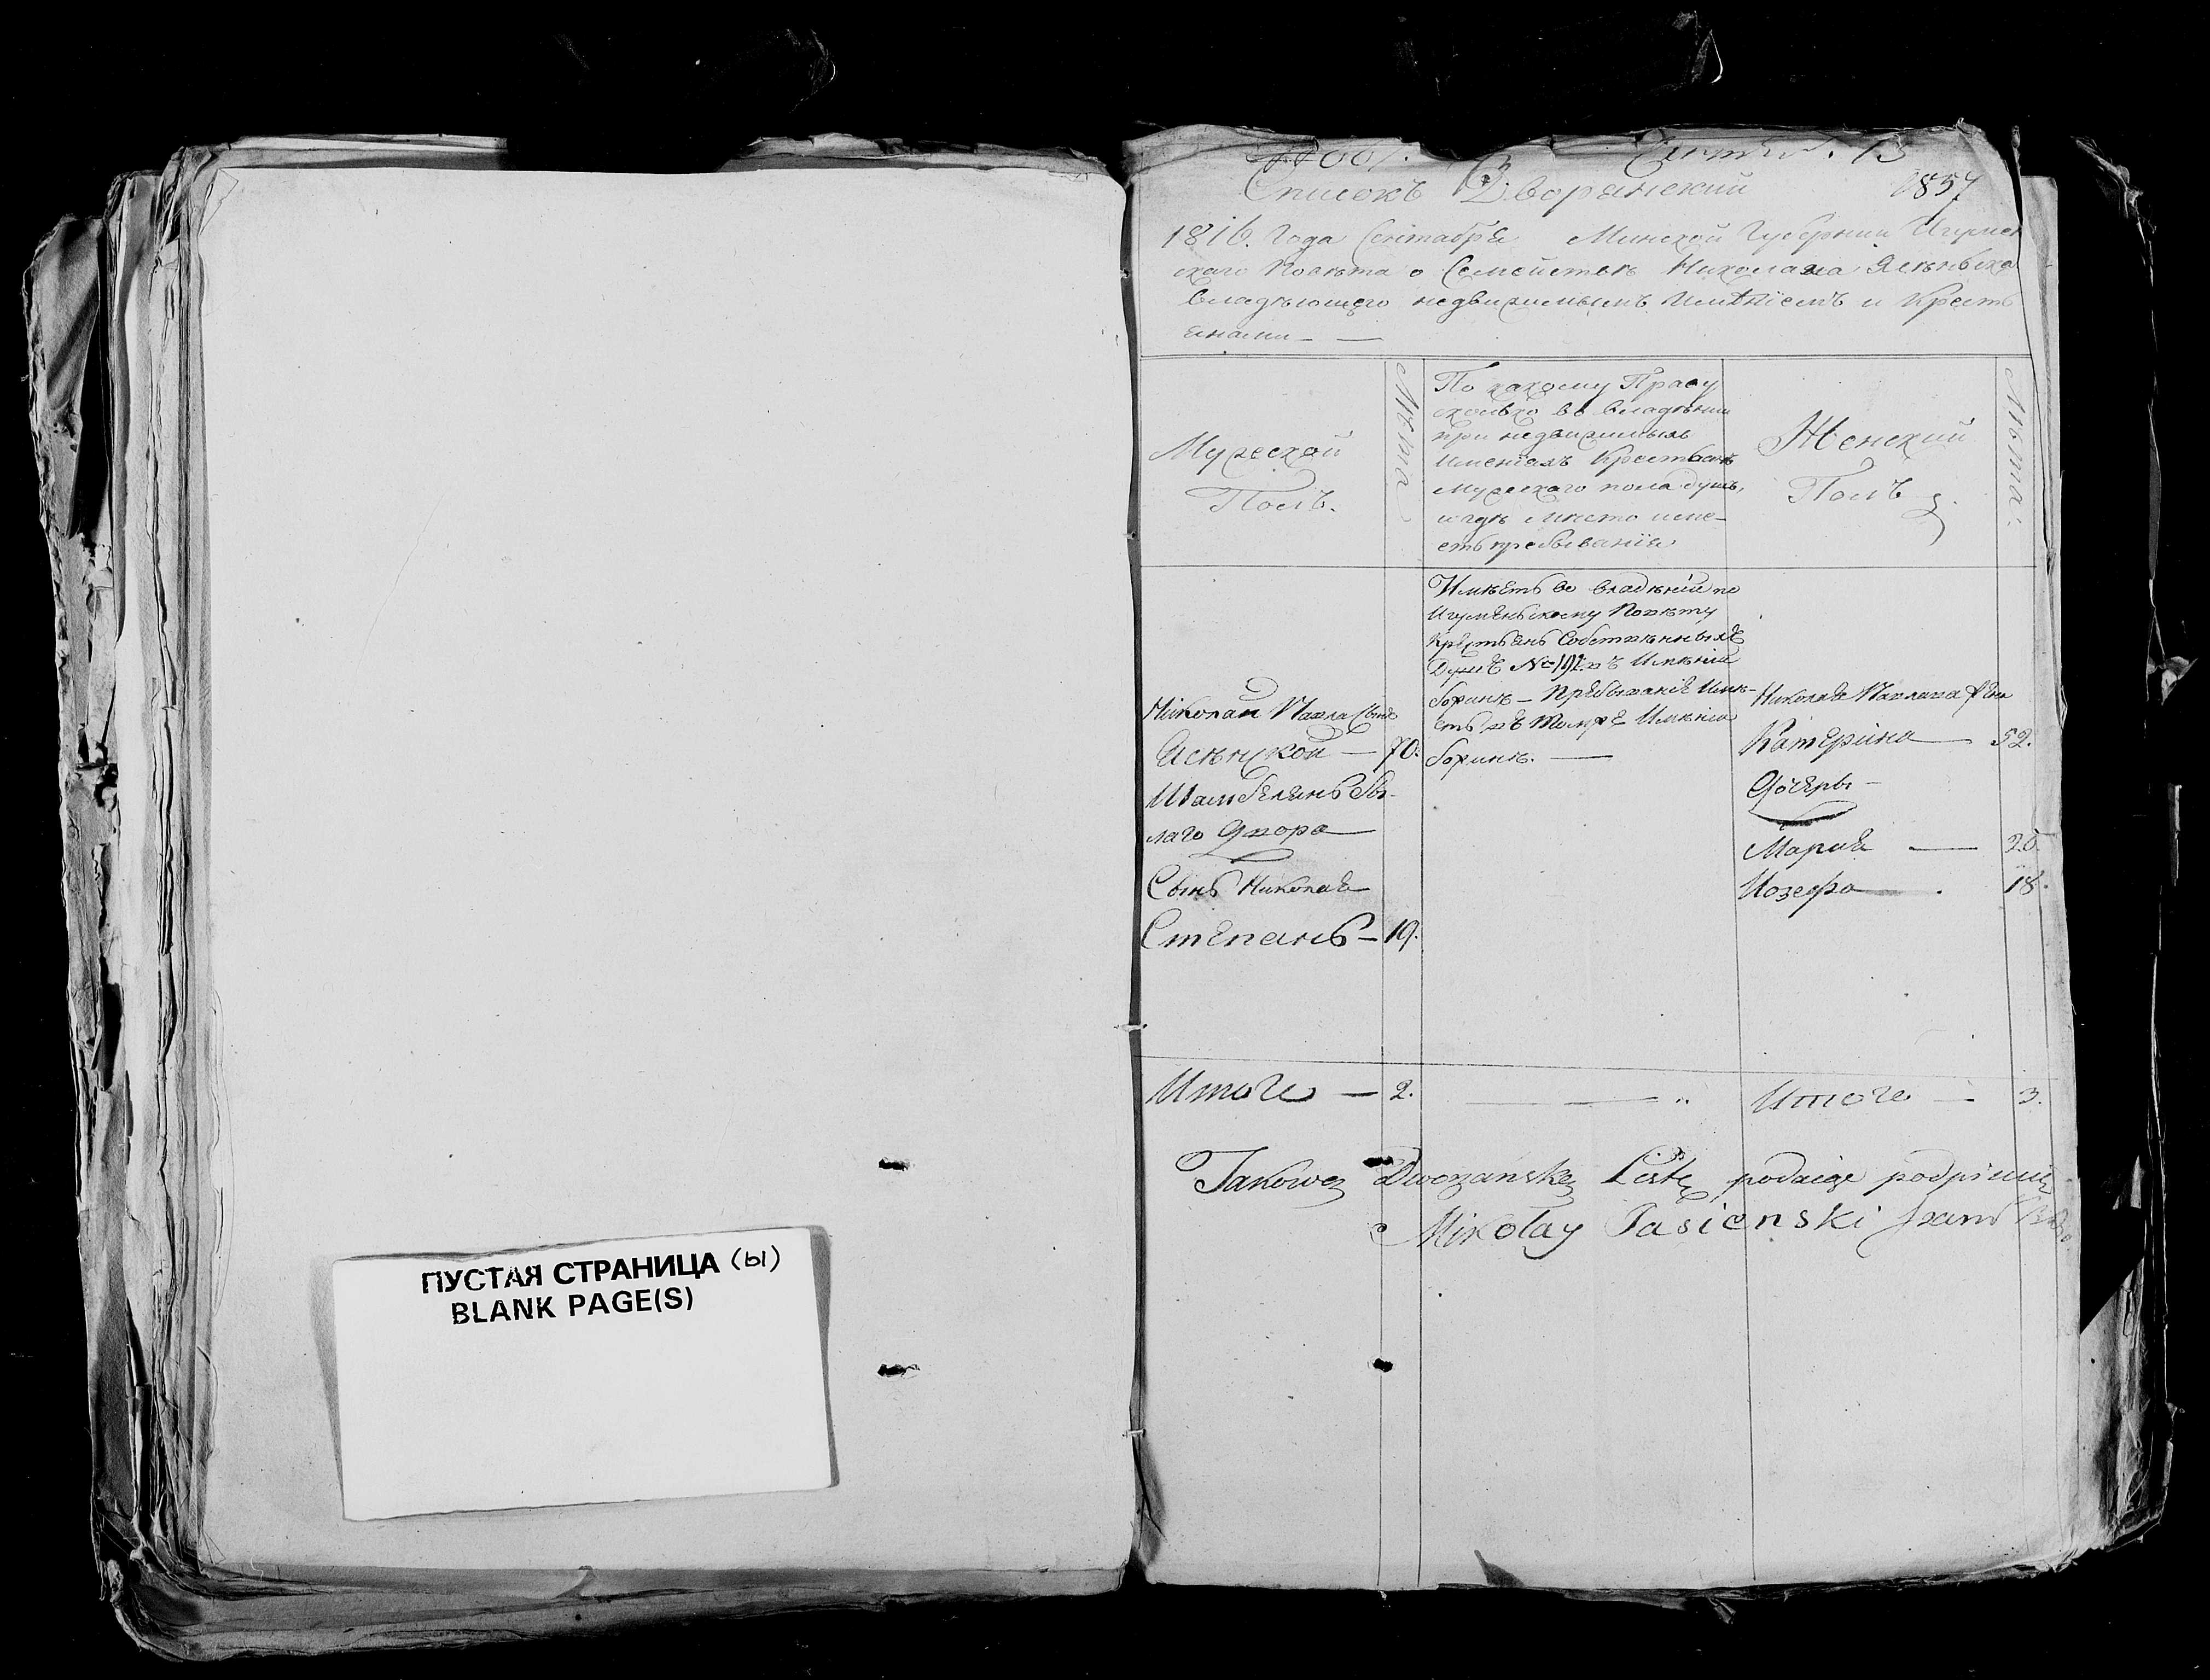 ПУСТАЯ СТРАНИЦА (ы)
BLANK PAGE(S)
Сентяб. 13
Списокъ Дворянский
1857
1816. Года Сентября Минской Губернии Игумен
скаго Повѣта о Семействѣ Николая Ясѣньска
владѣющего недвижимымъ Имѣніемъ и Крестъ
янами
Мужеской
Полъ.
Лѣта
По какому Праву
сколько во владѣнии
при недвижимыхъ
Именіяхъ Крестьянъ
Мужескаго пола душъ,
и гдѣ Место име-
етъ пребываніе
Женский
Полъ
Лѣта:
Николай Павла Сынъ
Ясѣнской — 70.
Шамбелянъ бы-
лаго Двора
Сынъ Николая
Степанъ — 19.
Имѣетъ во владѣній по
Игуменьскому Повѣту
Крестьянъ Собственныхъ
Душъ № 192 въ Имѣніи
Боринѣ — Пребыханіе Имѣ-
етъ въ Томже Имѣніи
Боринѣ.
Николая Павлава
Катерина — 52.
Дочеры
Мария — 20
Иозефа — 18.
Итого — 2.
Итого — 3.
Takową Dworzańską Listę podaięc podpisuię
Mikołay Jasienski szamb